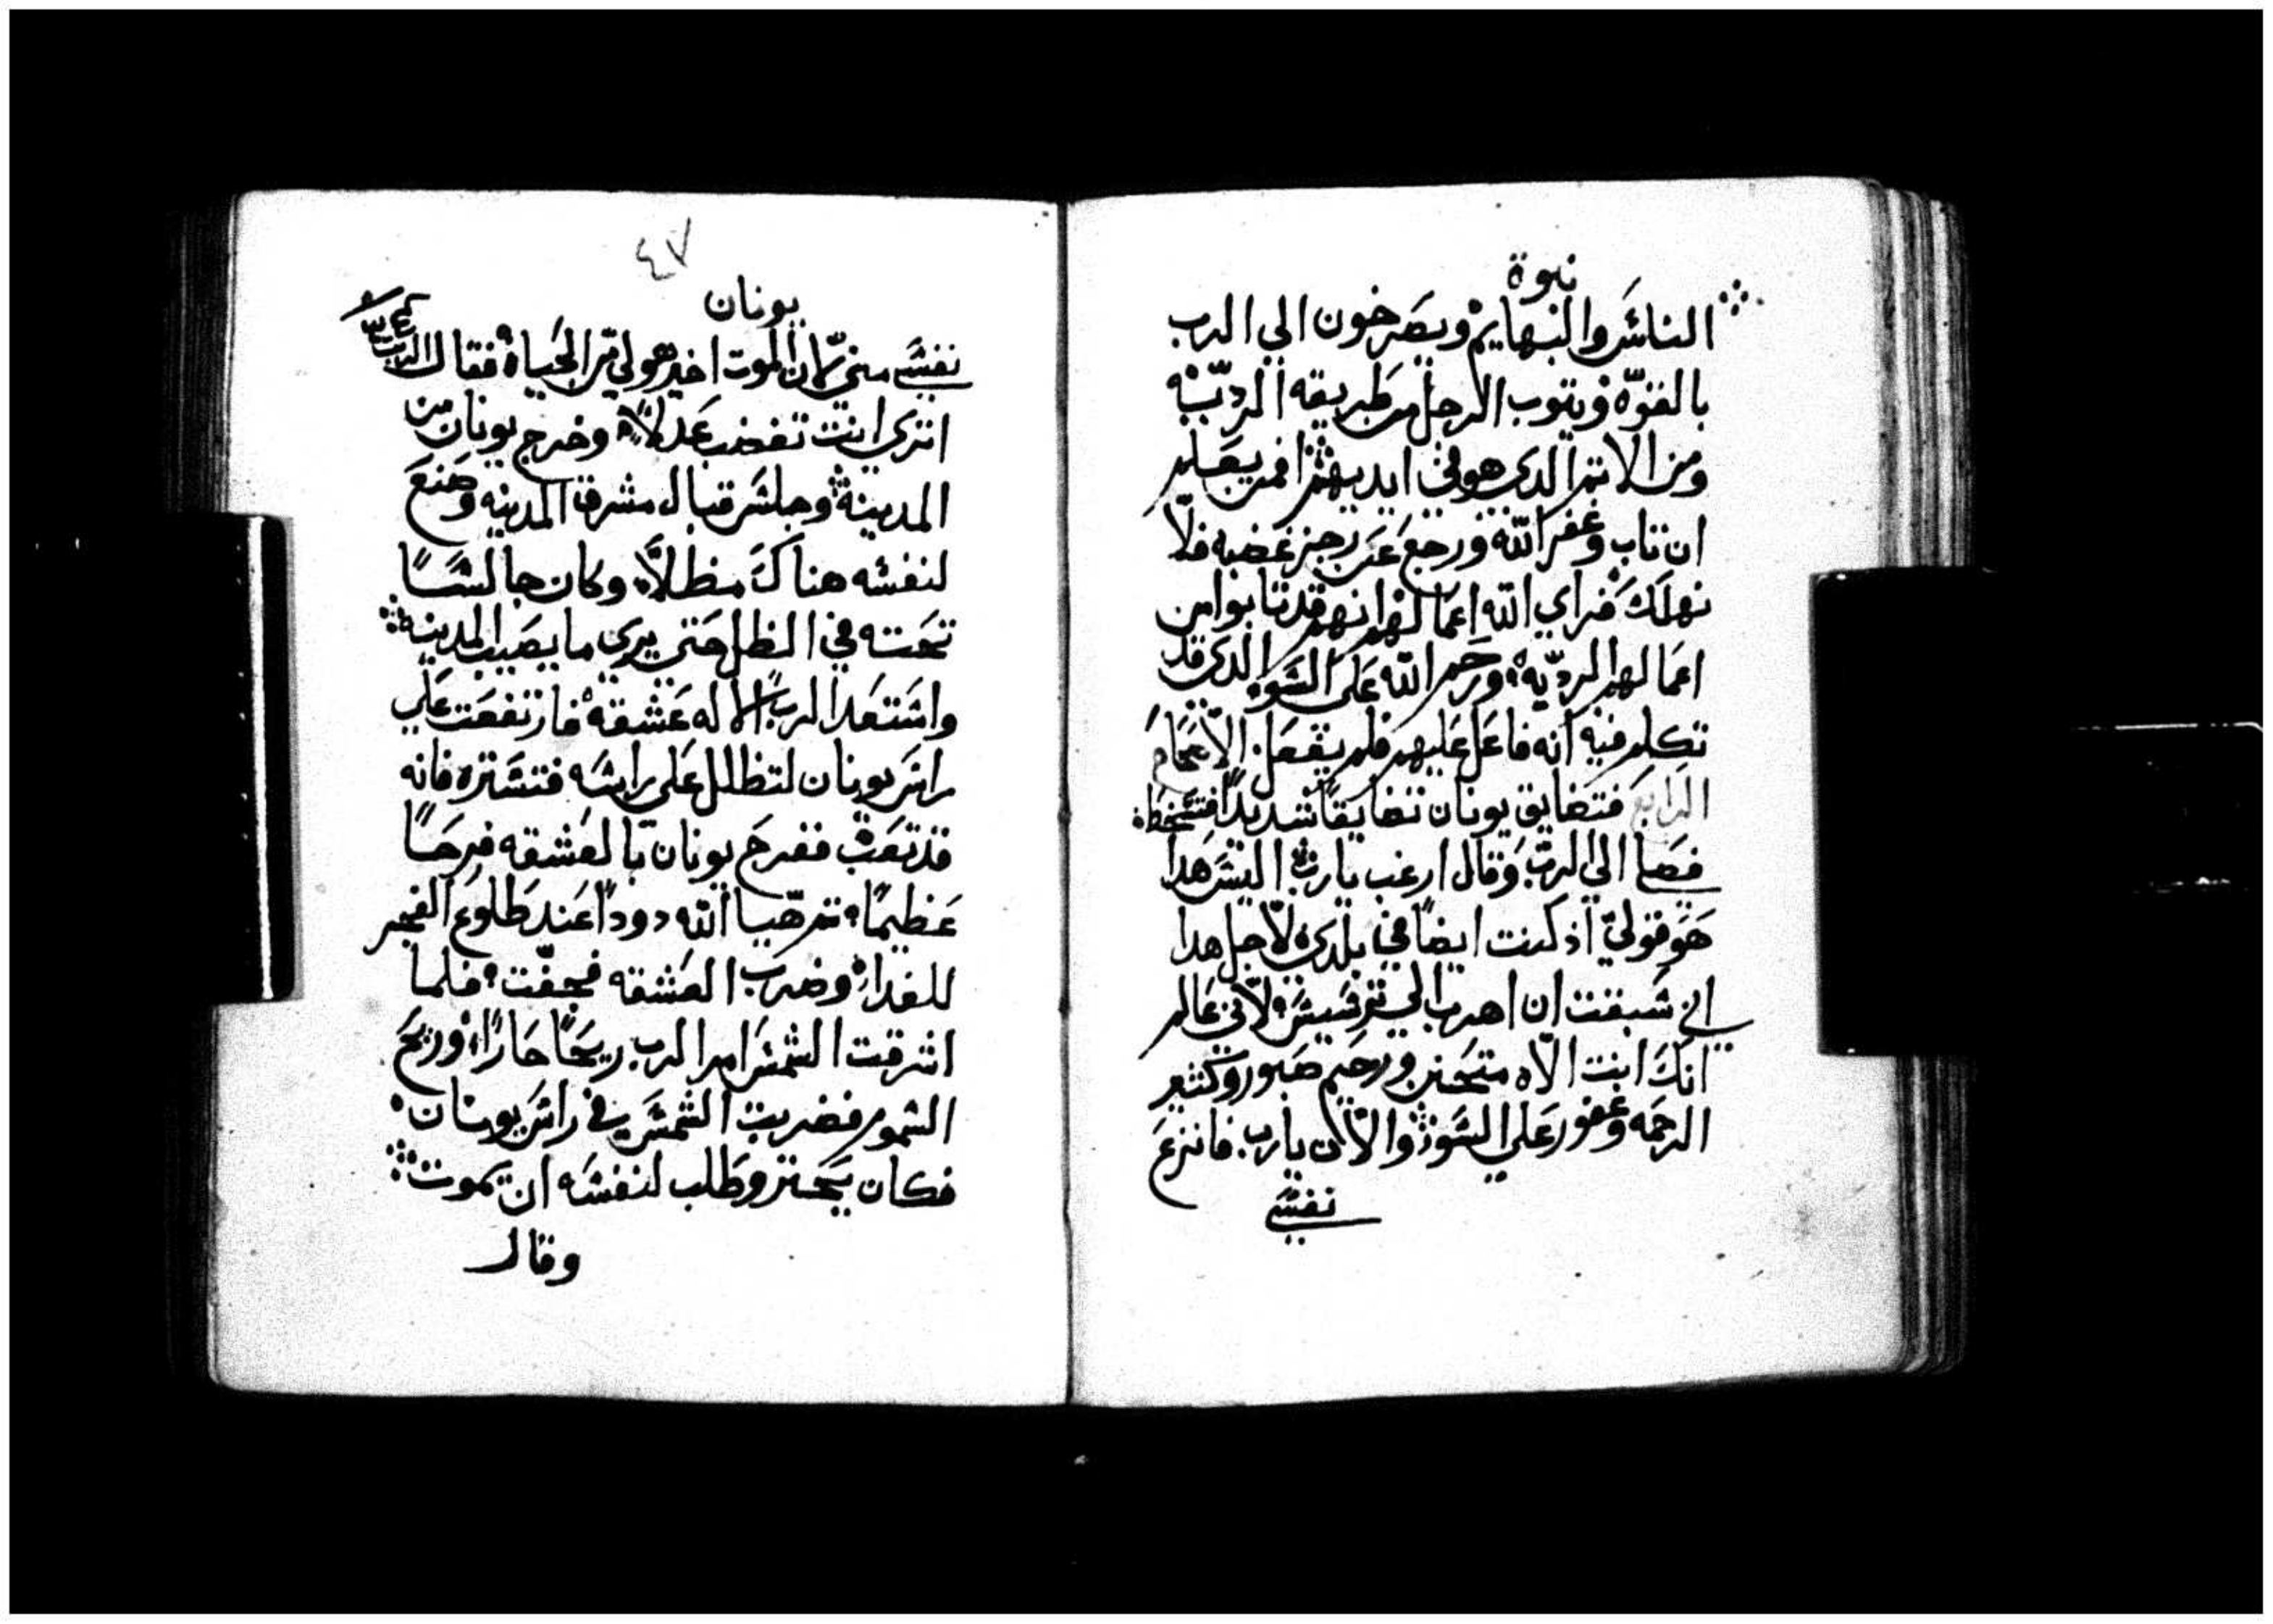 نبوة
الناس والبهايم ويصرخون الي الرب
بالقوه ويتوب الرجل من طريقه الرديه
ومن الاثم الدى هو في ايديهم فمن يعلم
ان تاب وغفر الله ورجع عن رجز غضبه فلا
نهلك فراي الله اعمالهم انهم قد تابوا من
اعمالهم الرديه ورحم الله على السوء الدى قد
تكلم فيه انه فاعل عليهم فلم يفعل الاصحاح
الرابع فتضايق يونان تضايقًا شديدًا فتسخط
فصلى الي الرب وقال ارغب يارب اليس هدا
هو قولي اذ كنت ايضًا في بلدى لاجل هدا
اني سبقت ان اهرب الي ترسيس لاني عالم
انك انت الاه متحنن ورحيم صبور وكثير
الرحمه وغفور علي السوء والان يارب فانزع
نفسي
٤٧
يونان
نفسي مني لان الموت اخير هو لي من الحياه فقال الرب
اترى انت تغضب عدلاً وخرج يونان من
المدينه وجلس قبال مشرق المدينه وصنع
لنفسه هناك مظلاً وكان جالسًا
تحته في الظل حتى يرى ما يصيب المدينه
واستعد الرب الاله عشقه فارتفعت علي
راس يونان لتظلل على راسه فتستره فانه
قد تعب ففرح يونان بالعشقه فرحًا
عظيمًا ثم هيا الله دودًا عند طلوع الفجر
للغداء وضرب العشقه فجفت فلما
اشرقت الشمس امر الرب ريحًا حارًا وريح
السموم فضربت الشمس في راس يونان
فكان يحتر وطلب لنفسه ان يموت
وقال